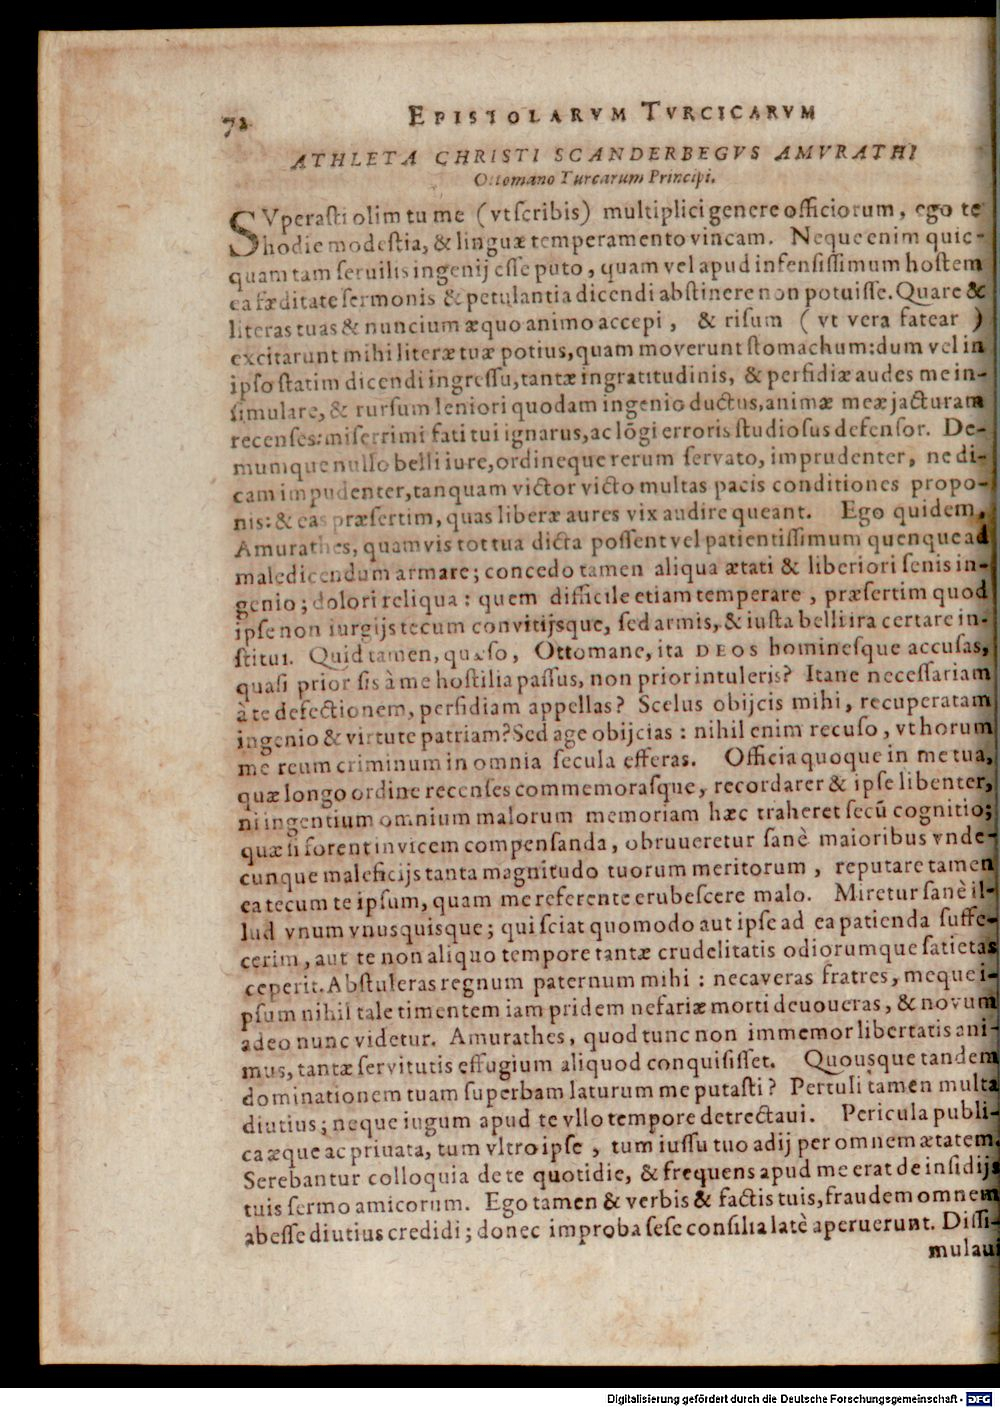 72 EPISTOLARVM TVRCICARVM
ATHLETA CHRISTI SCANDERBEGVS AMVRATHI
Ottomano Turcarum Principi.
SVperaſti olim tu me (vt ſcribis) multiplici genere officiorum, ego te
hodie modeſtia, & linguæ temperamento vincam. Neque enim quic-
quam tam ſeruilis ingenij eſſe puto, quam vel apud infenſiſſimum hoſtem
ea fæditate ſermonis & petulantia dicendi abſtinere non potuiſſe. Quare &
literas tuas & nuncium æquo animo accepi, & riſum (vt vera fatear)
excitarunt mihi literæ tuæ potius, quam moverunt ſtomachum: dum vel in
ipſo ſtatim dicendi ingreſſu, tantæ ingratitudinis, & perfidiæ audes me in-
ſimulare, & rurſum leniori quodam ingenio ductus, animæ meæ jacturam
recenſes: miſerrimi fati tui ignarus, ac lõgi erroris ſtudioſus defenſor. De-
mumque nullo belli iure, ordineque rerum ſervato, imprudenter, ne di-
cam impudenter, tanquam victor victo multas pacis conditiones propo-
nis: & eas præſertim, quas liberæ aures vix audire queant. Ego quidem,
Amurathes, quamvis tot tua dicta poſſent vel patientiſſimum quenque ad
maledicendum armare; concedo tamen aliqua ætati & liberiori ſenis in-
genio; dolori reliqua: quem difficile etiam temperare, præſertim quod
ipſe non iurgijs tecum convitijsque, ſed armis, & iuſta belli ira certare in-
ſtitui. Quid tamen, quæſo, Ottomane, ita DEOS hominefque accuſas,
quaſi prior ſis à me hoſtilia paſſus, non prior intuleris? Itane neceſſariam
à te defectionem, perfidiam appellas? Scelus obijcis mihi, recuperatam
ingenio & virtute patriam? Sed age obijcias: nihil enim recuſo, vt horum
me reum criminum in omnia ſecula efferas. Officia quoque in me tua,
quæ longo ordine recenſes commemoraſque, recordarer & ipſe libenter,
ni ingentium omnium malorum memoriam hæc traheret ſecũ cognitio;
quæ ſi forent invicem compenſanda, obruueretur ſanè maioribus vnde-
cunque maleficijs tanta magnitudo tuorum meritorum, reputare tamen
ea tecum te ipſum, quam me referente erubeſcere malo. Miretur ſanè il-
lud vnum vnusquisque; qui ſciat quomodo aut ipſe ad ea patienda ſuffe-
cerim, aut te non aliquo tempore tantæ crudelitatis odiorumque ſatietas
ceperit. Abſtuleras regnum paternum mihi: necaveras fratres, meque i-
pſum nihil tale timentem iam pridem nefariæ morti deuoueras, & novum
adeo nunc videtur. Amurathes, quod tunc non immemor libertatis ani-
mus, tantæ ſervitutis effugium aliquod conquiſiſſet. Quousque tandem
dominationem tuam ſuperbam laturum me putaſti? Pertuli tamen multa
diutius; neque iugum apud te vllo tempore detrectaui. Pericula publi-
ca æque ac priuata, tum vltro ipſe, tum iuſſu tuo adij per omnem ætatem.
Serebantur colloquia de te quotidie, & frequens apud me erat de inſidijs
tuis ſermo amicorum. Ego tamen & verbis & factis tuis, fraudem omnem
abeſſe diutius credidi; donec improba ſeſe conſilia latè aperuerunt. Diſſi-
mulaui
Digitalisierung gefördert durch die Deutsche Forschungsgemeinschaft - DFG